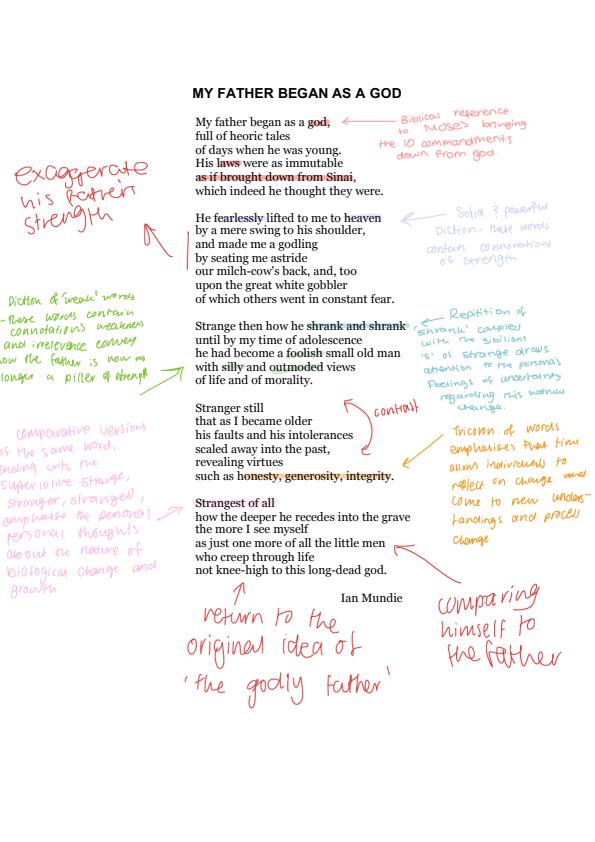 MY FATHER BEGAN AS A GOD
My father began as a god,
full of heoric tales
of days when he was young.
His laws were as immutable
as if brought down from Sinai,
which indeed he thought they were.
He fearlessly lifted to me to heaven
by a mere swing to his shoulder,
and made me a godling
by seating me astride
our milch-cow's back, and, too
upon the great white gobbler
of which others went in constant fear.
Strange then how he shrank and shrank
until by my time of adolescence
he had become a foolish small old man
with silly and outmoded views
of life and of morality.
Stranger still
that as I became older
his faults and his intolerances
scaled away into the past,
revealing virtues
such as honesty, generosity, integrity.
Strangest of all
how the deeper he recedes into the grave
the more I see myself
as just one more of all the little men
who creep through life
not knee-high to this long-dead god.
Ian Mundie
Biblical reference
to Moses bringing
the 10 commandments
down from god.
exaggerate
his father's
strength
Solid & powerful
Diction - these words
contain connotations
of strength
Diction of 'weak' words
- these words contain
connotations weakness
and irrelevance convey
how the father is now no
longer a piller of strength
Repitition of
'shrank' coupled
with the sibilant
's' of strange draws
attention to the persona's
feelings of uncertainty
regarding this
change.
contrast
Tricolon of words
emphasises that time
allows individuals to
reflect on change and
come to new unders-
tandings and process
change
comparative versions
of the same word,
ending with the
superlative strange,
stranger, strangest,
emphasise the personas
personal thoughts
about the nature of
biological change and
growth
comparing
himself to
the father
return to the
original idea of
'the godly father'